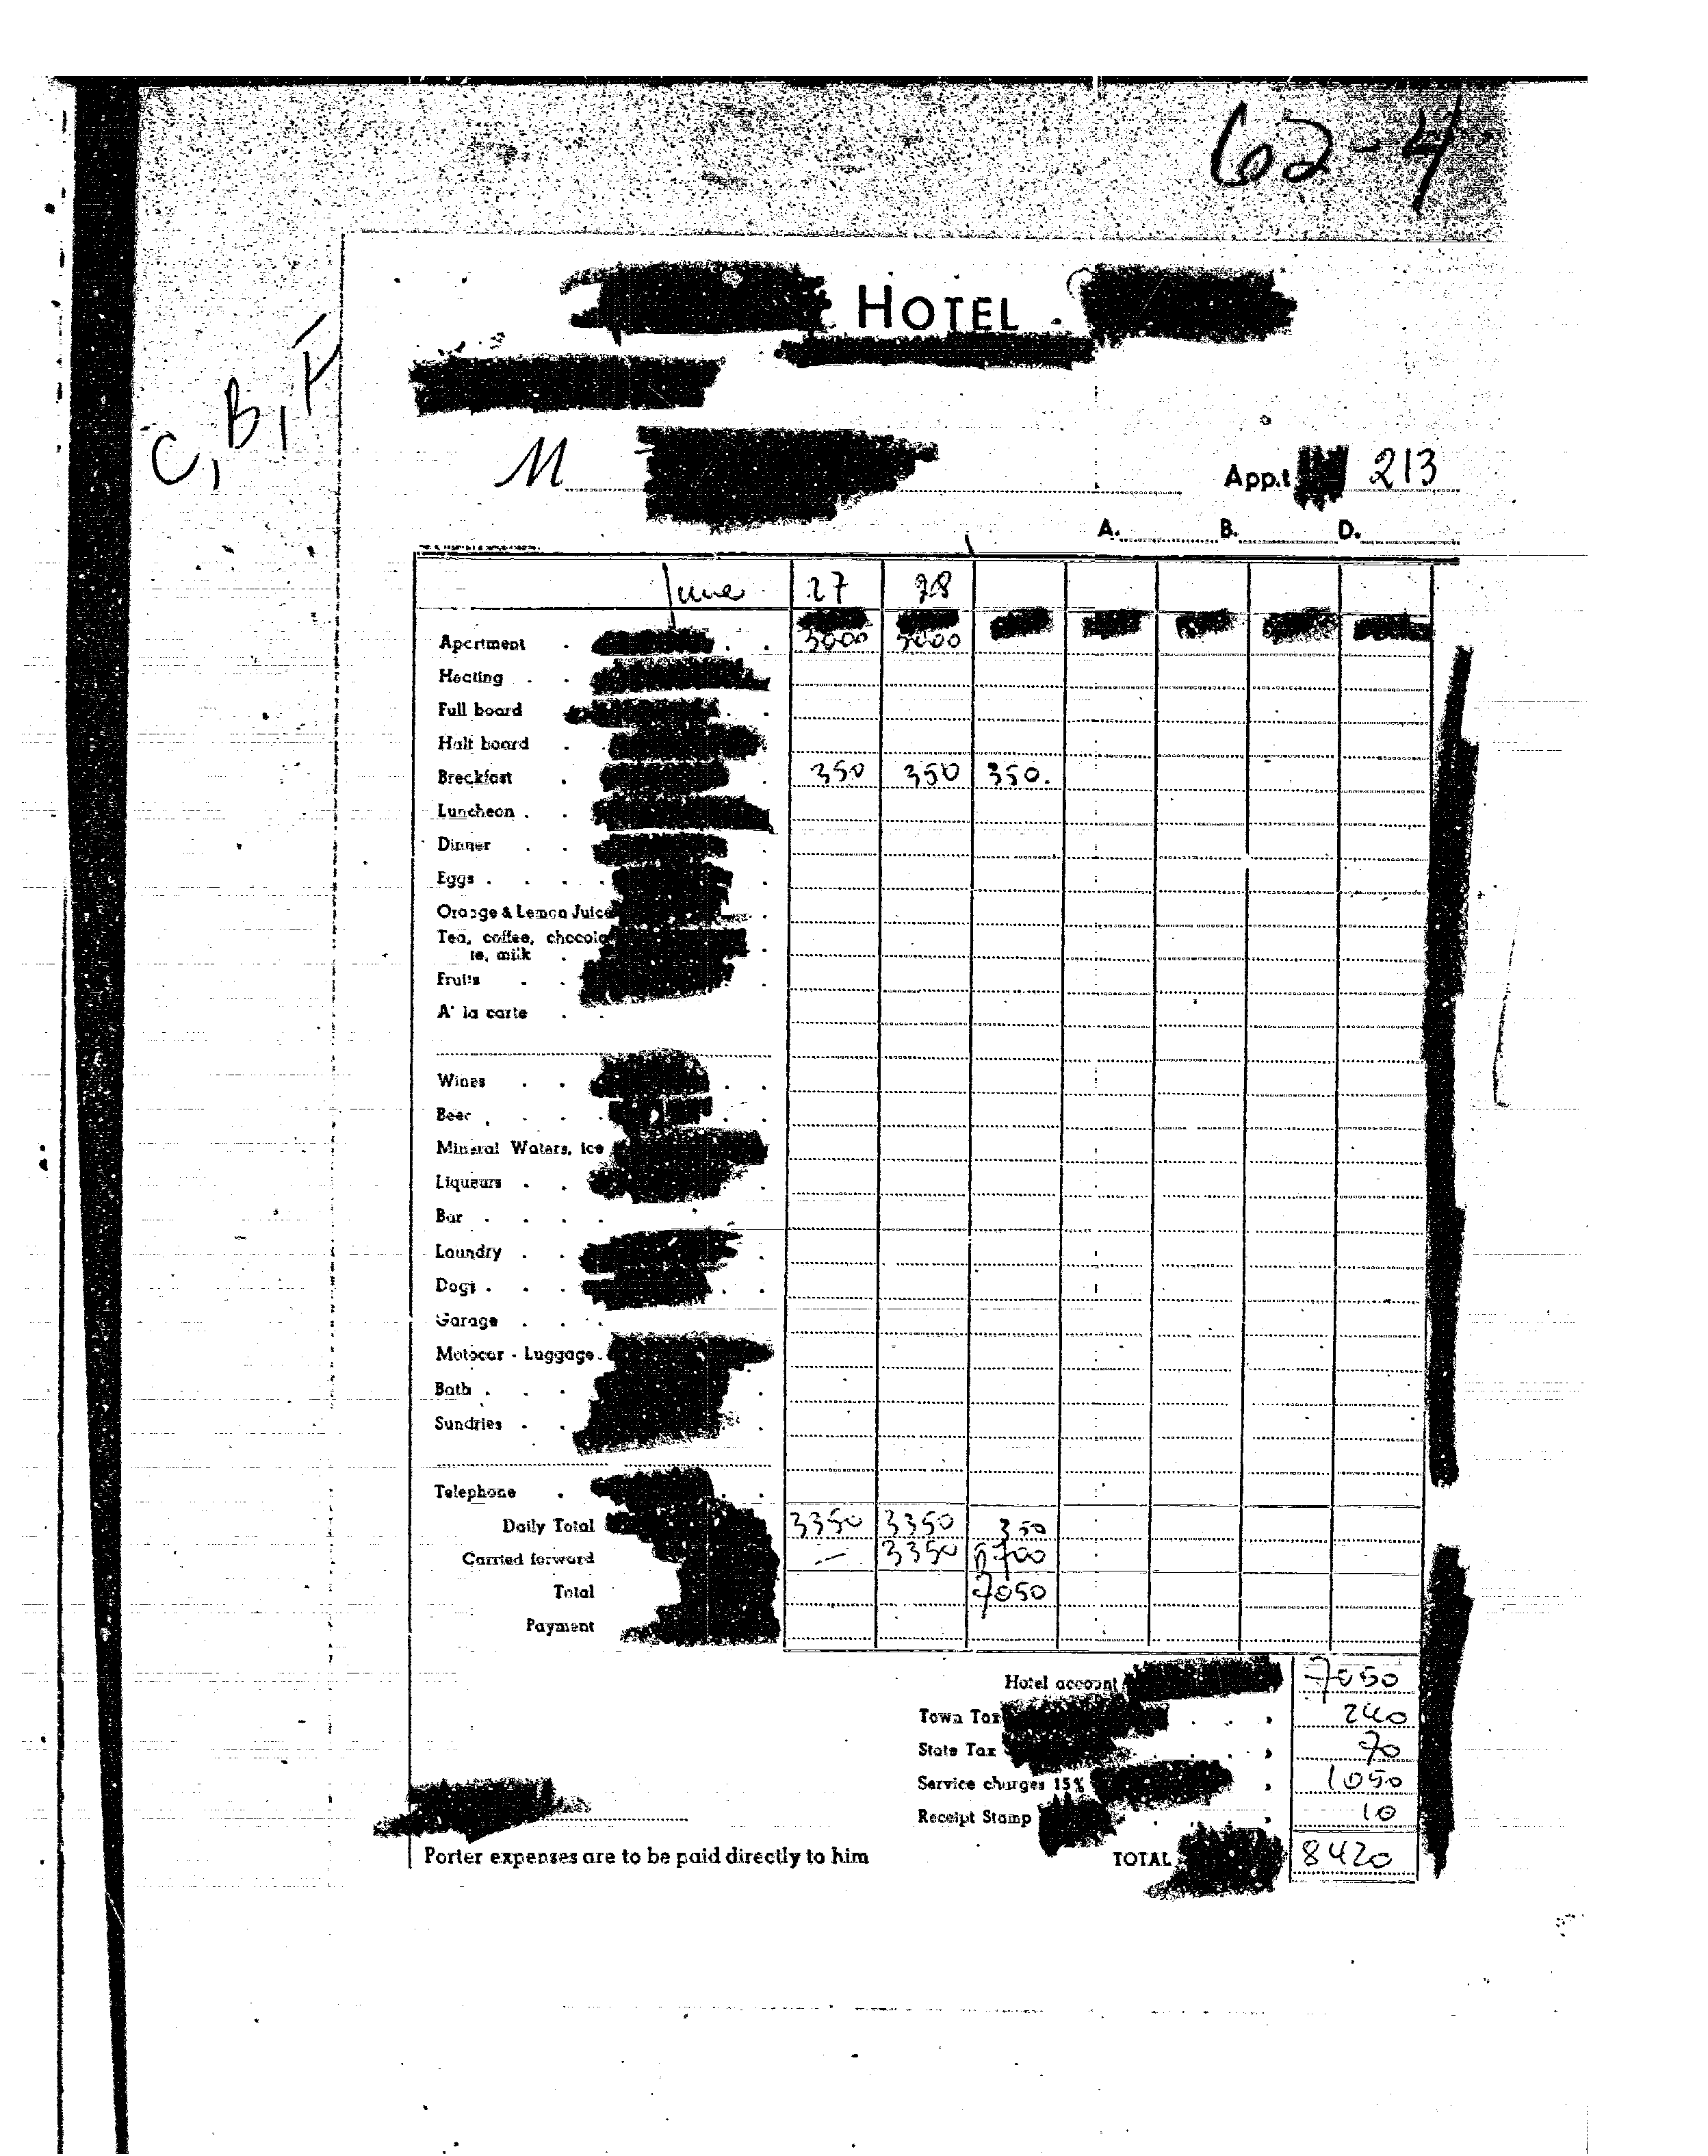 62-4
HOTEL
C, B, F
M App.t 213
A. B. D.
June 27 28
Apartment 3000 3000
Heating
Full board
Half board
Breakfast 350 350 350.
Luncheon
Dinner
Eggs
Orange & Lemon Juice
Tea, coffee, chocola
te, milk
Fruits
A' la carte
Wines
Beer
Mineral Waters, ice
Liqueurs
Bar
Laundry
Dogs
Garage
Motocar - Luggage
Bath
Sundries
Telephone
Daily Total 3350 3350 350
Carried forward — 3350 6700
Total 7050
Payment
Hotel account 7050
Town Tax 240
State Tax 70
Service charges 15% 1050
Receipt Stamp 10
Porter expenses are to be paid directly to him TOTAL 8420